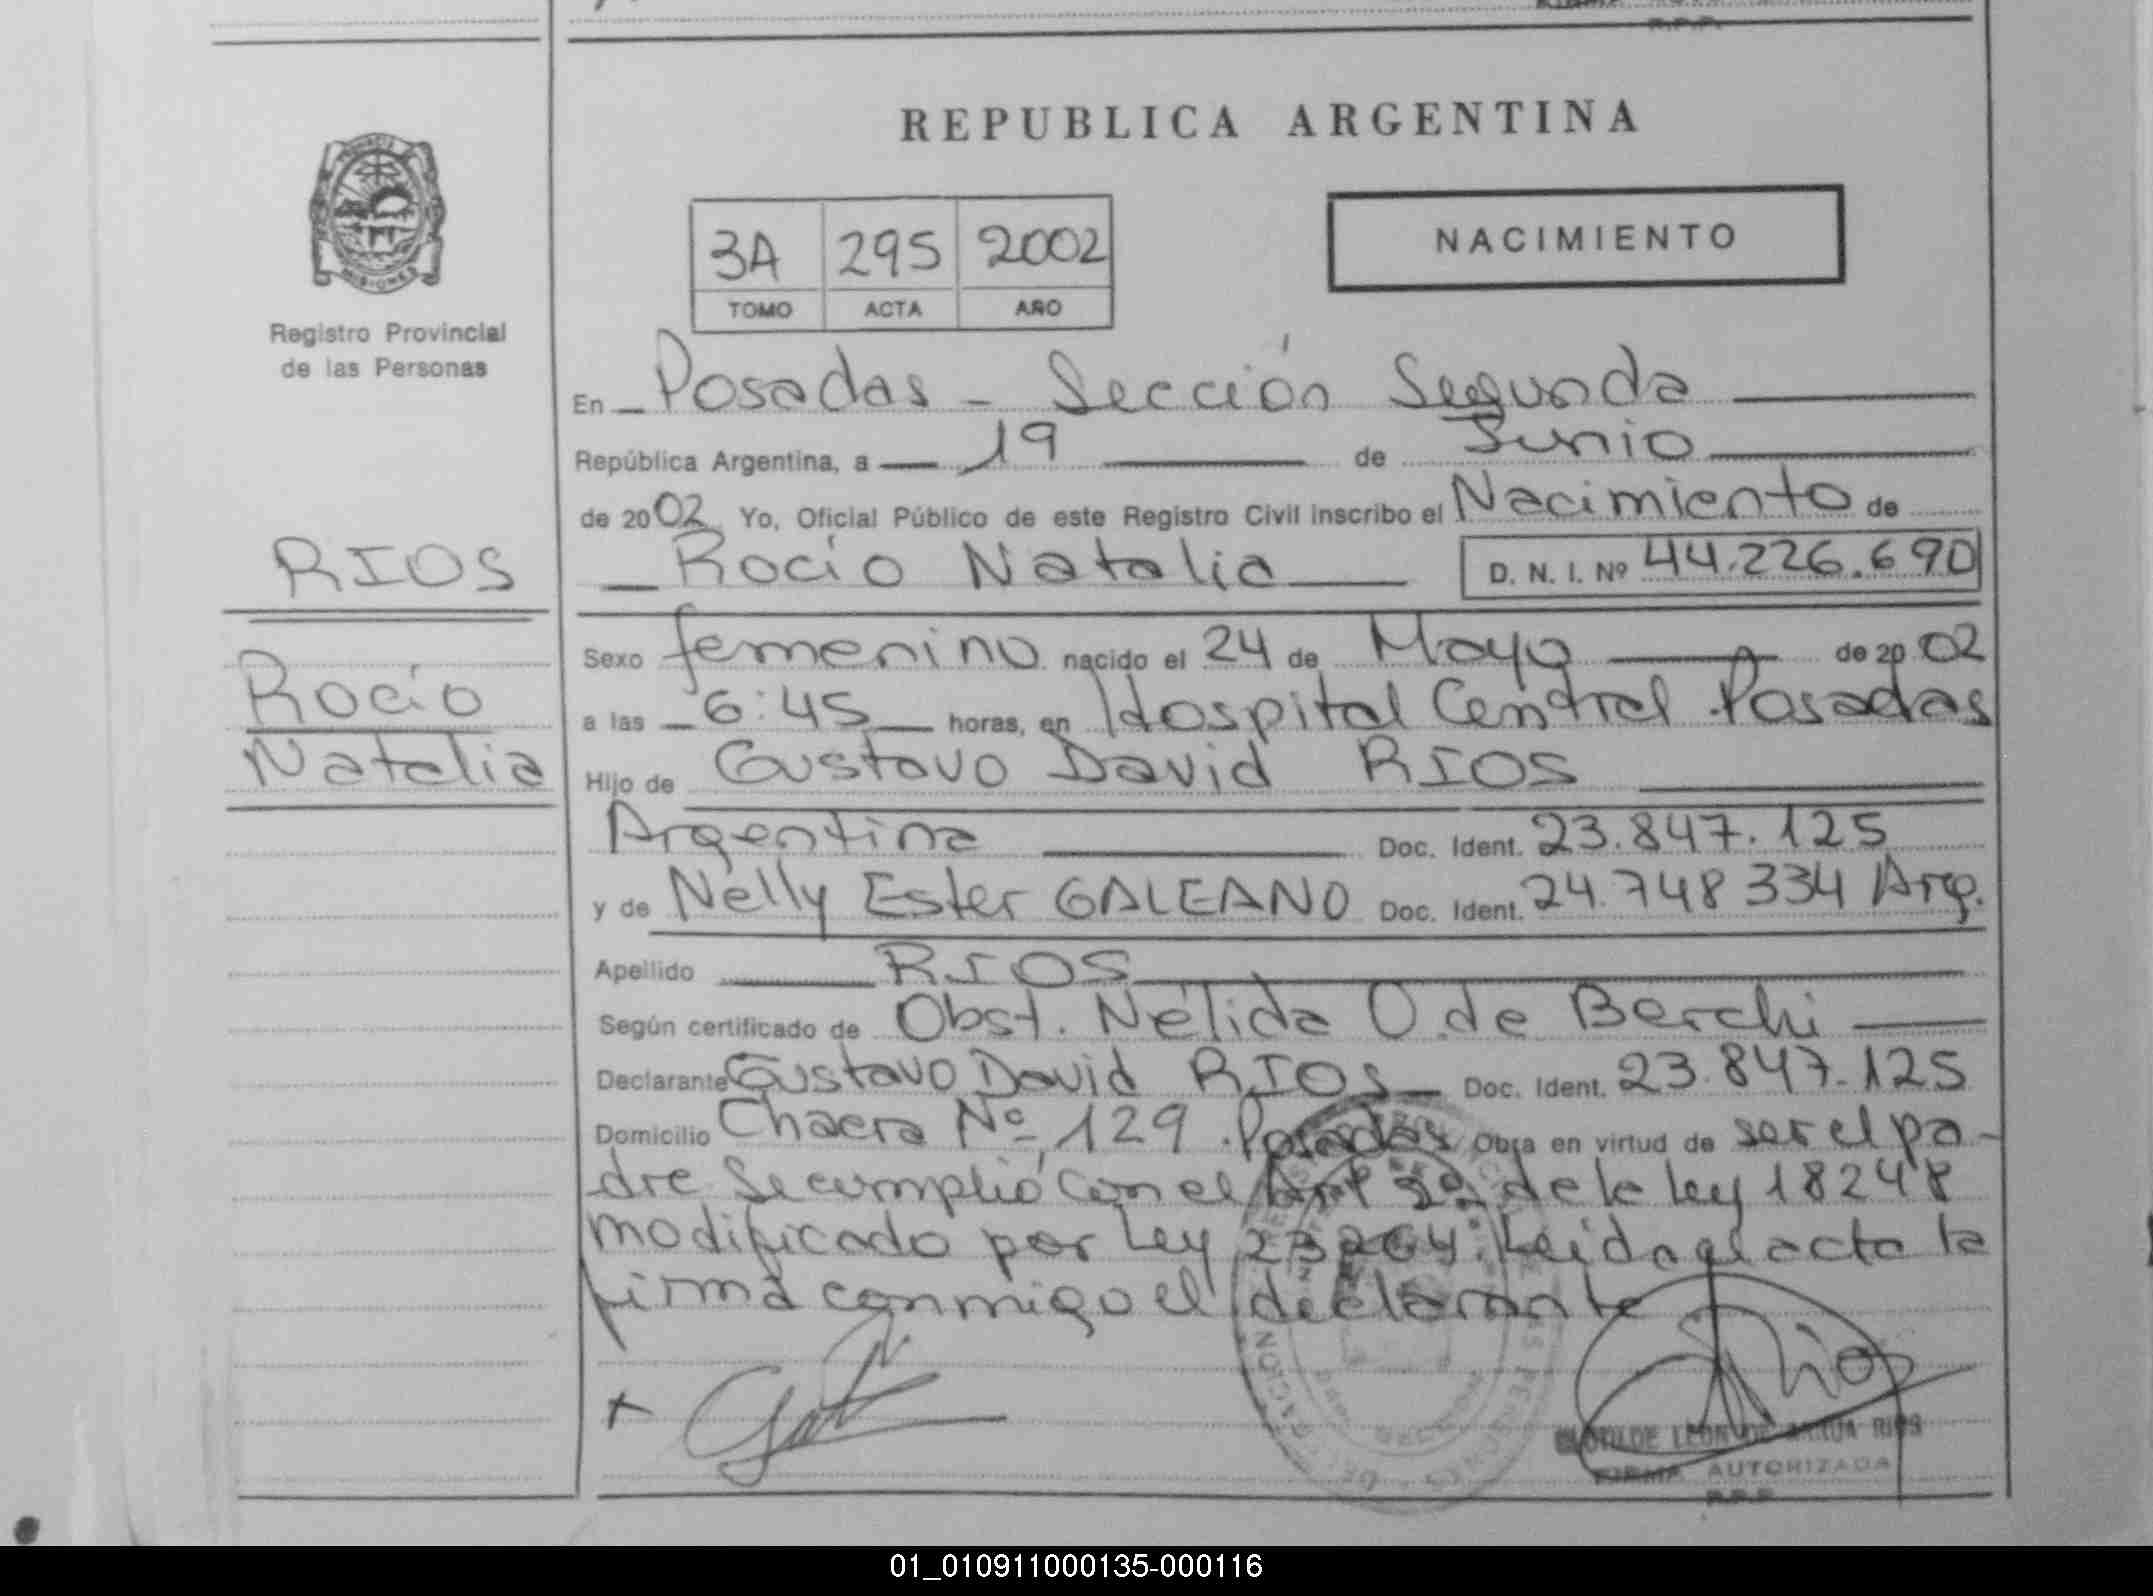 REPUBLICA ARGENTINA
3A 295 2002
TOMO ACTA AÑO
NACIMIENTO
PROVINCIA DE MISIONES
Registro Provincial
de las Personas
RIOS
Rocío
Natalia
En Posadas - Sección Segunda
República Argentina, a 19 de Junio
de 2002 Yo, Oficial Público de este Registro Civil inscribo el Nacimiento de
Rocío Natalia D. N. I. Nº 44.226.690
Sexo femenino nacido el 24 de Mayo de 2002
a las 6:45 horas, en Hospital Central Posadas
Hijo de Gustavo David RIOS
Argentina Doc. Ident. 23.847.125
y de Nelly Ester GALEANO Doc. Ident. 24.748 334 Arg.
Apellido RIOS
Según certificado de Obst. Nélida O. de Berchi
Declarante Gustavo David RIOS Doc. Ident. 23.847.125
Domicilio Chacra Nº 129 Posadas Obra en virtud de ser el pa-
dre Se cumplió con el Art de la ley 18248
modificado por Ley 23264. Leida el acta la
firma conmigo el declarante
LEON DE RIOS
FIRMA AUTORIZADA
R.P.P.
01_010911000135-000116